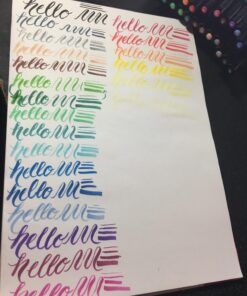 hello
hello
hello
hello
hello
hello
hello
hello
hello
hello
hello
hello
hello
hello
hello
hello
hello
hello
hello
hello
hello
hello